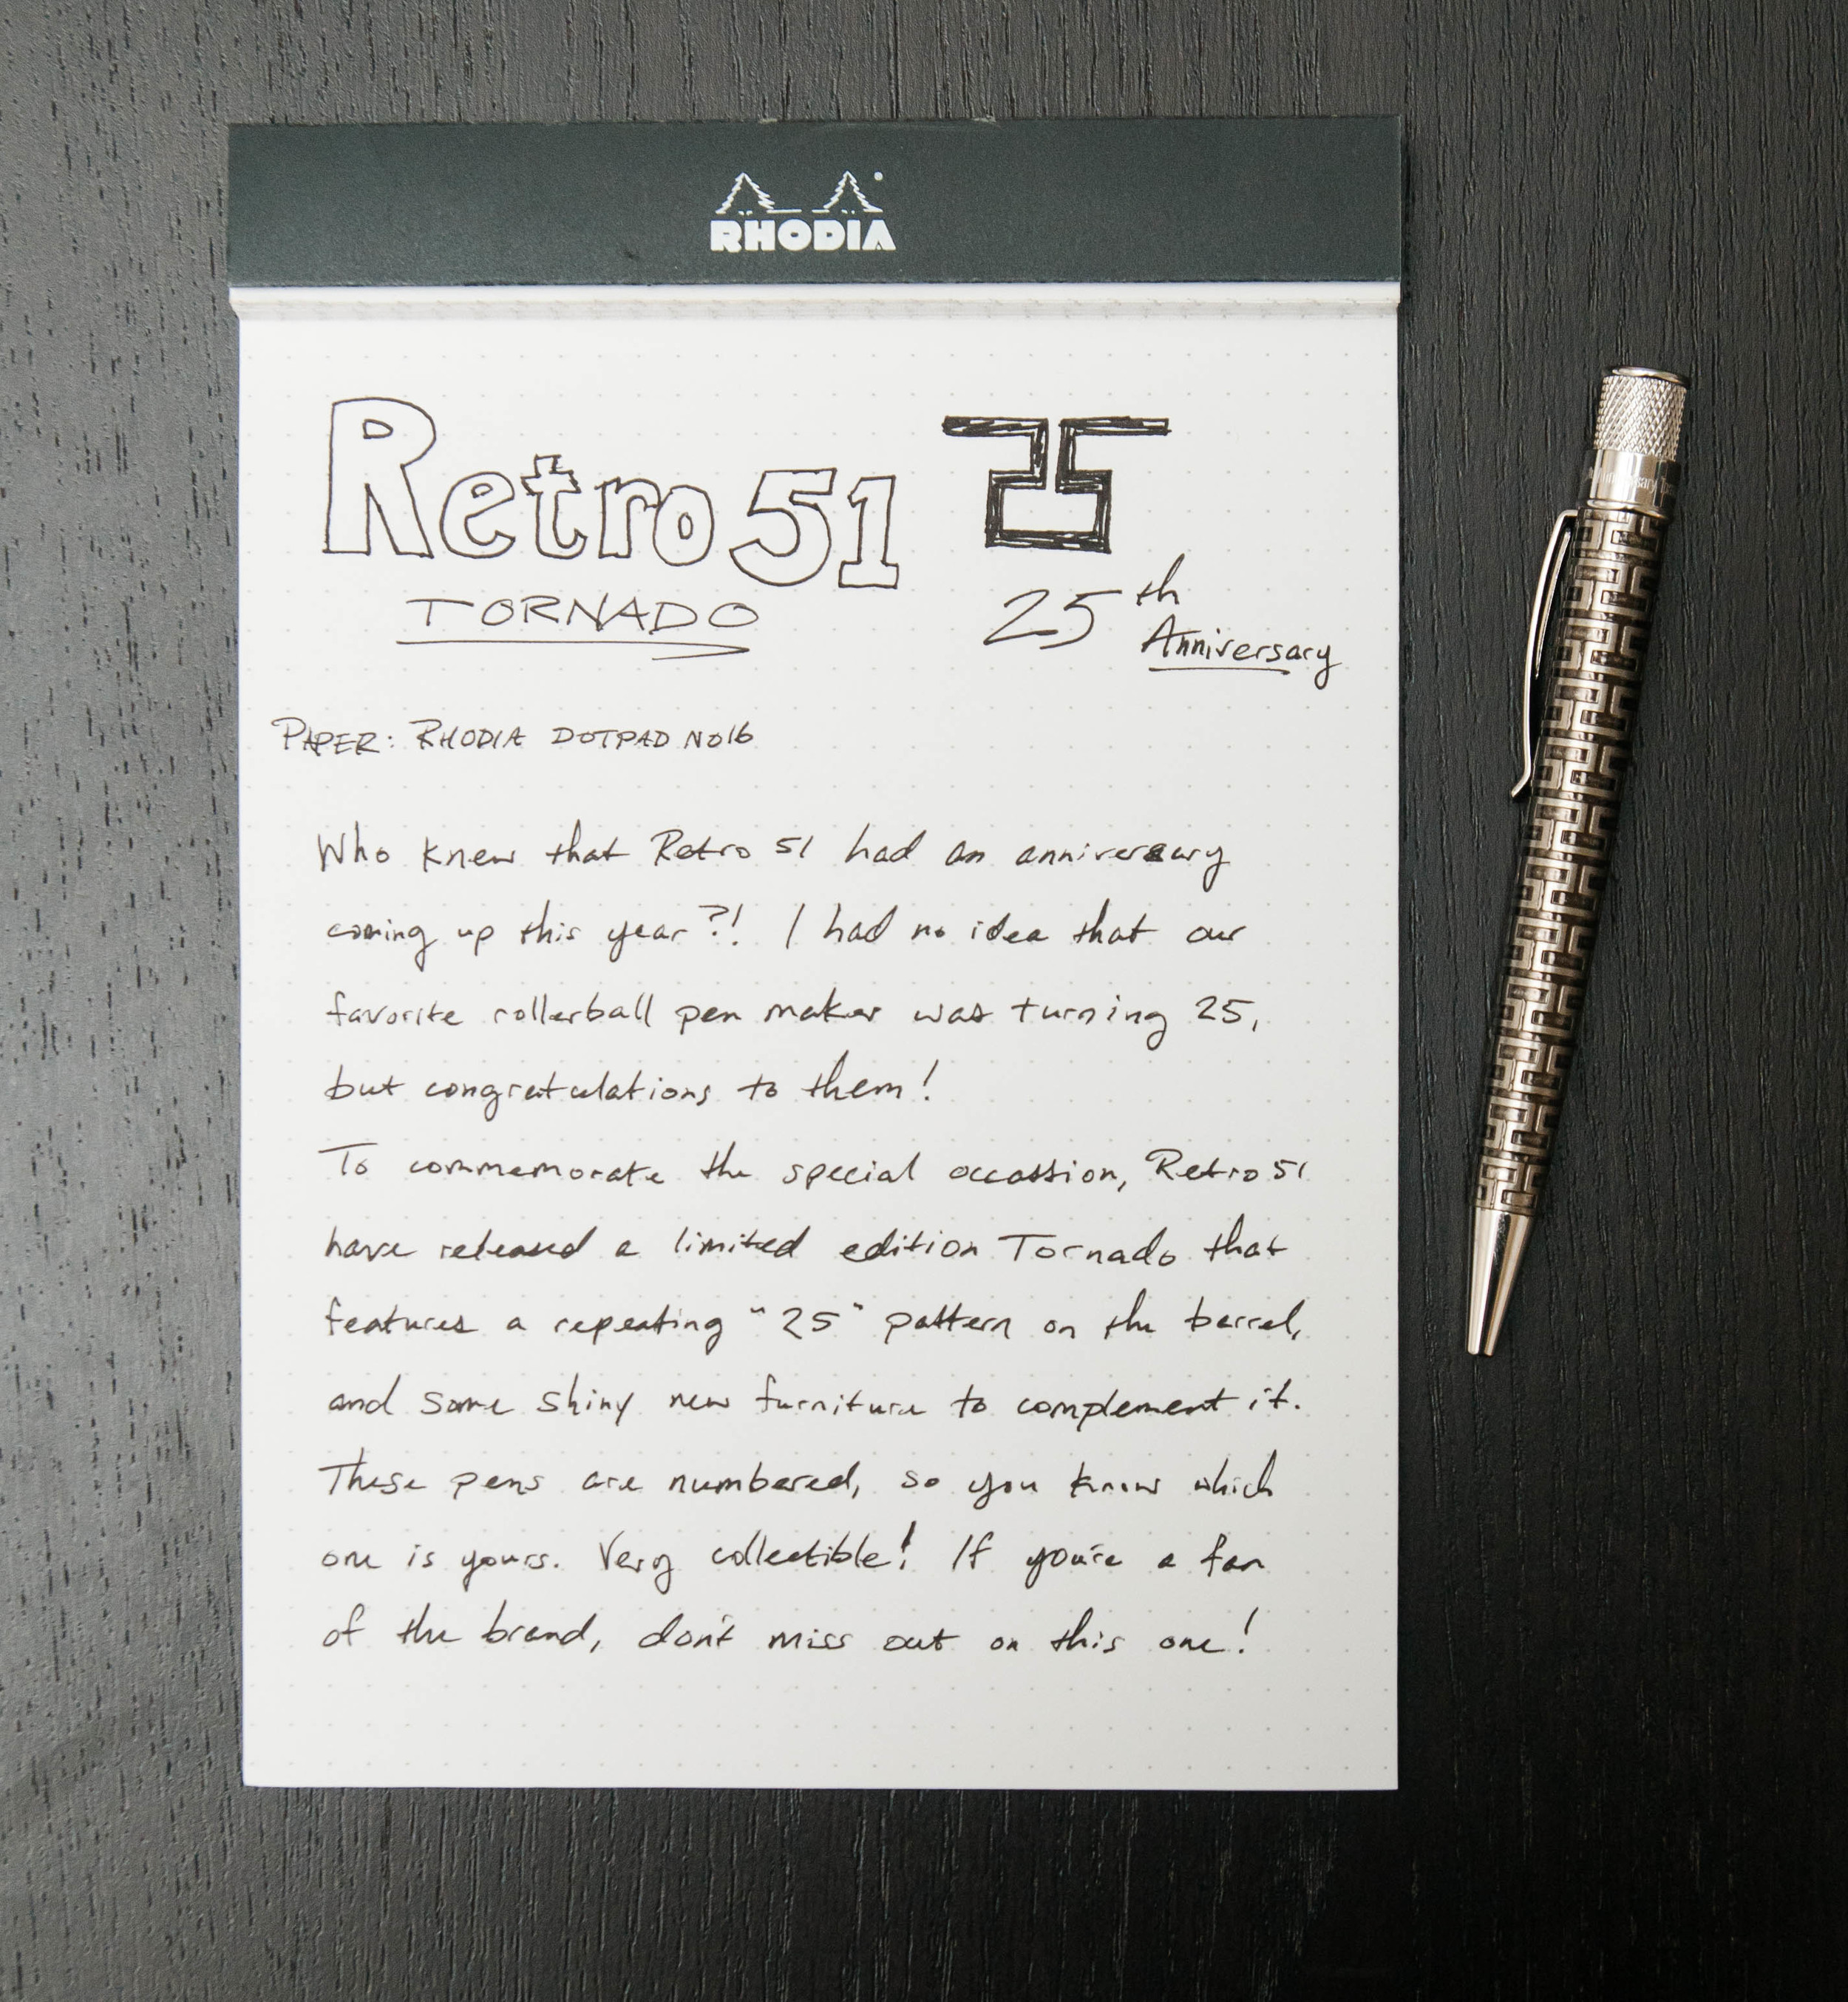 RHODIA
Retro 51
TORNADO
25th
Anniversary
PAPER: RHODIA DOTPAD NO16
Who knew that Retro 51 had an anniversary
coming up this year?! I had no idea that our
favorite rollerball pen maker was turning 25,
but congratulations to them!
To commemorate the special occassion, Retro 51
have released a limited edition Tornado that
features a repeating "25" pattern on the barrel,
and some shiny new furniture to complement it.
These pens are numbered, so you know which
one is yours. Very collectible! If you're a fan
of the brand, don't miss out on this one!